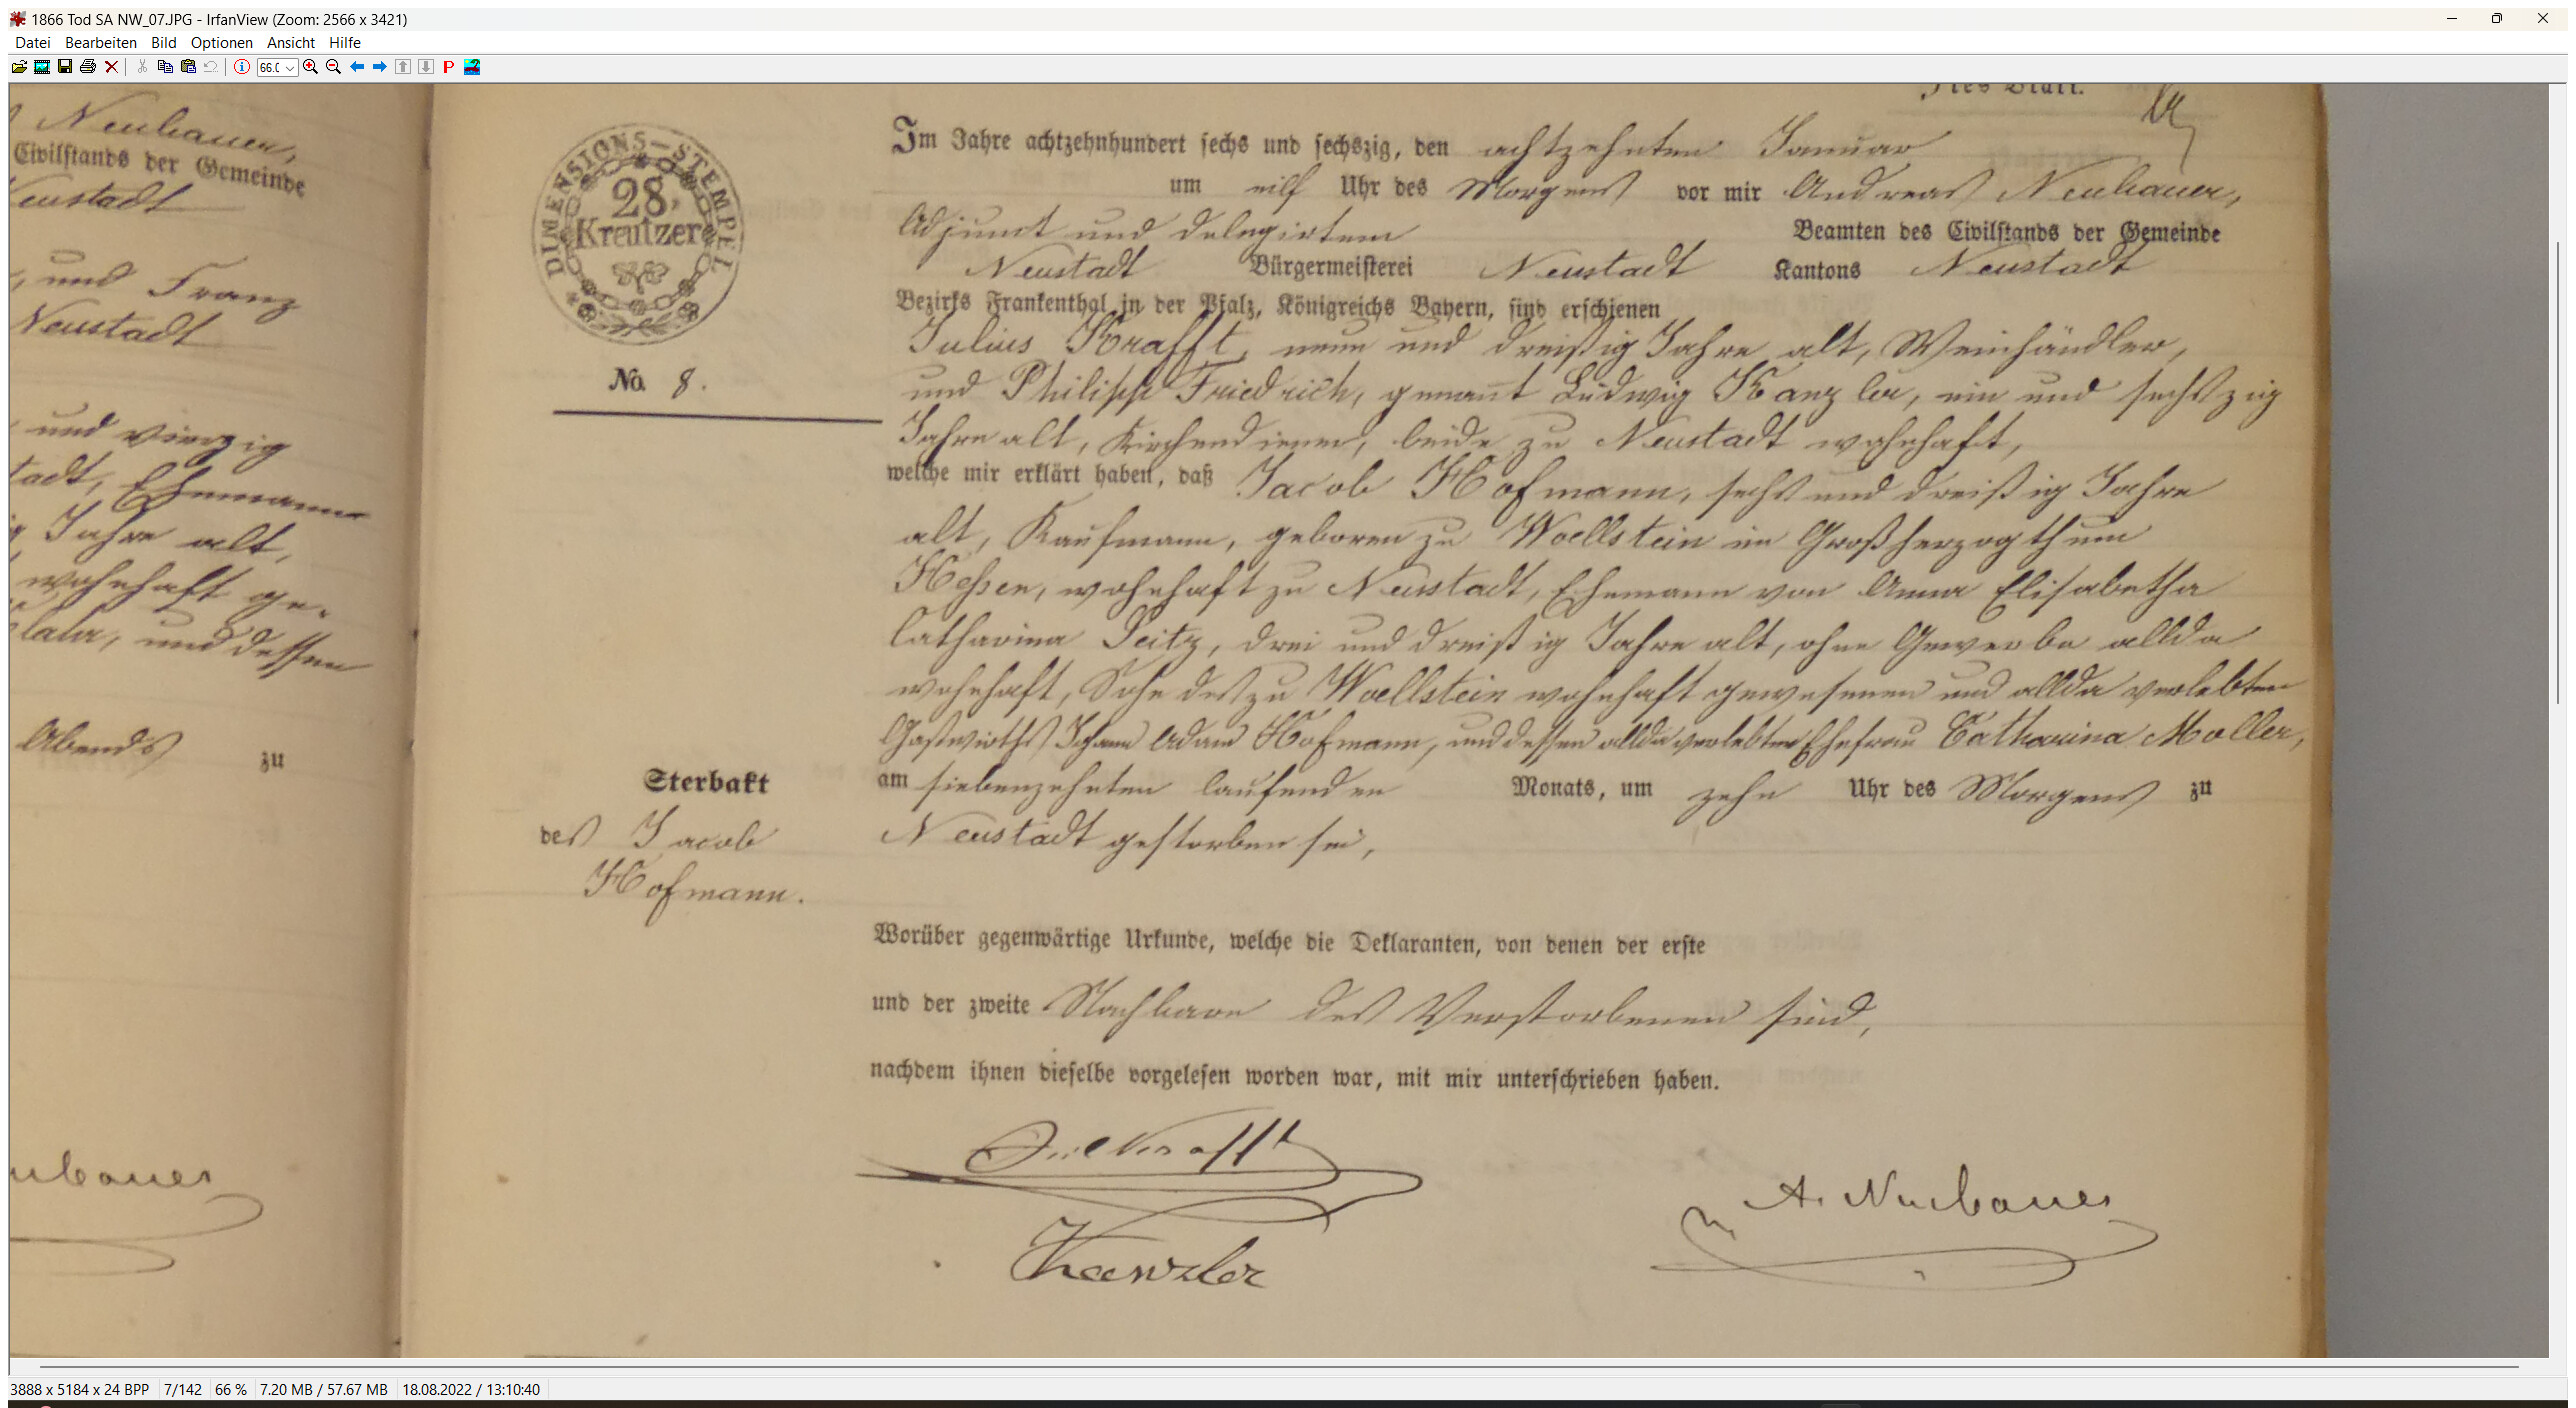 1866 Tod SA NW_07.JPG - IrfanView (Zoom: 2566 x 3421)
Datei Bearbeiten Bild Optionen Ansicht Hilfe
66.0
Neubauer,
Civilstands der Gemeinde
Neustadt
, und Franz
Neustadt
und vierzig
tadt, Ehemann
Jahre alt,
wohnhaft ge-
und dessen
Abends zu
ubauer
DIMENSIONS-STEMPEL
28,
Kreutzer
No. 8.
Sterbakt
des Jacob
Hofmann.
7tes Blatt.
Im Jahre achtzehnhundert sechs und sechszig, den achtzehnten Januar
um eilf Uhr des Morgens vor mir Andreas Neubauer,
Adjunct und delegirtem Beamten des Civilstands der Gemeinde
Neustadt Bürgermeisterei Neustadt Kantons Neustadt
Bezirks Frankenthal in der Pfalz, Königreichs Bayern, sind erschienen
Julius Krafft, neun und dreißig Jahre alt, Weinhändler,
und Philipp Friedrich, genannt Ludwig Kanzler, ein und sechszig
Jahre alt, Kirchendiener, beide zu Neustadt wohnhaft,
welche mir erklärt haben, daß Jacob Hofmann, sechs und dreißig Jahre
alt, Kaufmann, geboren zu Woellstein im Großherzogthum
Hessen, wohnhaft zu Neustadt, Ehemann von Anna Elisabetha
Catharina Seitz, drei und dreißig Jahre alt, ohne Gewerbe allda
wohnhaft, Sohn des zu Woellstein wohnhaft gewesenen und allda verlebten
Gastwirths Johann Adam Hofmann, und dessen allda verlebten Ehefrau Catharina Moller,
am siebenzehnten laufenden Monats, um zehn Uhr des Morgens zu
Neustadt gestorben sei,
Worüber gegenwärtige Urkunde, welche die Deklaranten, von denen der erste
und der zweite Nachbarn des Verstorbenen sind,
nachdem ihnen dieselbe vorgelesen worden war, mit mir unterschrieben haben.
Jul Krafft
A. Neubauer
Kanzler
3888 x 5184 x 24 BPP 7/142 66 % 7.20 MB / 57.67 MB 18.08.2022 / 13:10:40